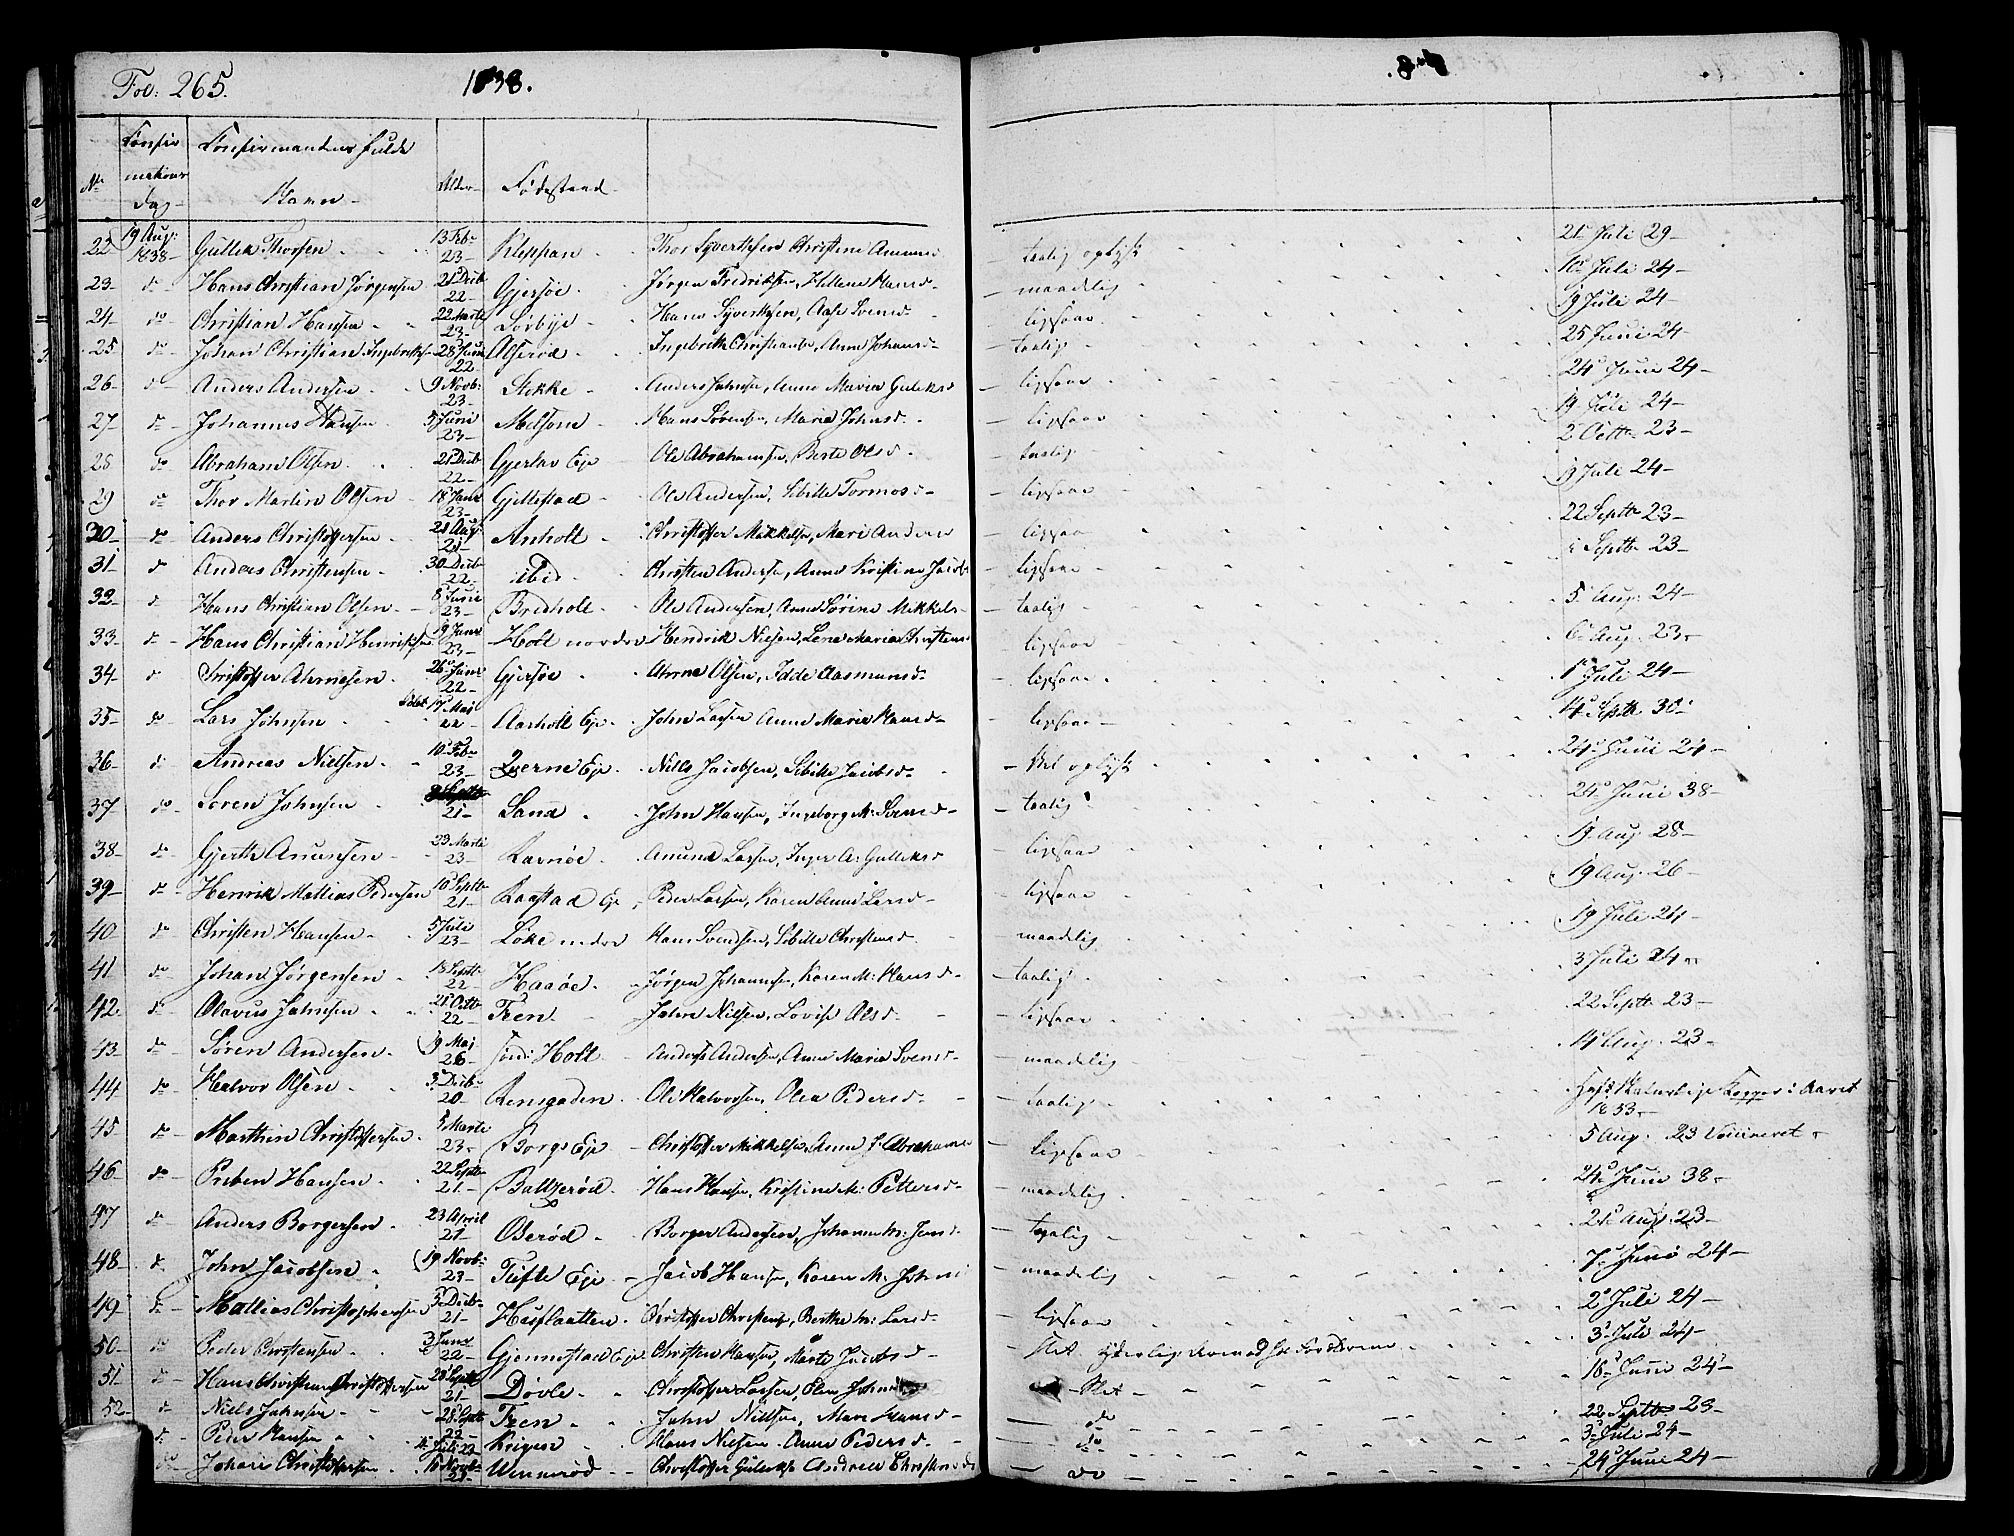 Fol: 265. 1838.
Confir Confirmandens fulde
mations
No Navn Alder Fødested
Dag
22 19 Aug: 1838 Gullik Thorsen 13 Feb: 23 Kleppan Thor Syvertsen Christine Amunds taalig oplyst 21 Juli 29
23 do Hans Christian Jørgensen 21 Decb 22 Gjersøe Jørgen Fredriksen, Hellene Hansd maadelig 10 Juli 24
24 do Christian Hansen 22 Marti 23 Sørbye Hans Syvertsen, Aase Svensd ligesaa 19 Juli 24
25 do Johan Christian Ingebriktsen 28 Juni 22 Olserød Ingebrikt Christiansen, Anne Johansd taalig 25 Juni 24
26 do Anders Andersen 9 Novb: 23 Stokke Anders Johnsen, Anne Maria Guleksd ligesaa 24 Juni 24
27 do Johannes Hansen 5 Juni 23 Melsom Hans Sørensen, Maria Johnsd ligesaa 19 Juli 24
28 do Abraham Olsen 21 Decb 22 Gjerlav Eje Ole Abrahamsen, Berte Olsd taalig 2 Octb 23
29 do Thor Martin Olsen 18 Janr 23 Gjellestad Ole Andersen, Sibille Tormosd ligesaa 19 Juli 24
30 do Anders Christoffersen 21 Aug 21 Anholt Christoffer Mikkelsen, Mari Andersd ligesaa 22 Septb 23
31 do Anders Christensen 30 Decb 22 ibid Christen Andersen, Anne Kristine Jacobs ligesaa Septb 23
32 do Hans Christian Olsen 8 Juni 23 Bredholt Ole Andersen, Anne Sørine Mikkels taalig 5 Aug: 24
33 do Hans Christian Henriksen 19 Janr 23 Holt nordre Hendrik Nielsen, Lena Maria Christens ligesaa 6 Aug. 23
34 do Christoffer Ahrnesen 26 Janr 22 Gjersøe Ahrne Olsen, Idde Aasmunsd ligesaa 1 Juli 24
35 do Lars Johnsen 17 Maj 22 Aasholt Eje John Larsen Anne Maria Hansd ligesaa 14 Septb 30
36 do Andreas Nielsen 10 Feb: 23 Qverne Eje Niels Jacobsen, Sibille Jacobsd Vel oplyst 24 Juni 24
37 do Søren Johnsen Septb 21 Sand John Hansen, Ingeborg M: Svensd taalig 24 Juni 38
38 do Gjerth Anunsen 23 Marti 23 Ravnøe Amund Larsen, Inger A: Gulleksd ligesaa 19 Aug 28
39 do Henrik Mathias Pedersen 10 Septb 21 Raastad Eje Peder Larsen, Karen Anne Larsd ligesaa 19 Aug. 26
40 do Christen Hansen 5 Juli 23 Løke nedre Hans Svendsen, Sibille Christensd maadelig 19 Juli 24
41 do Johan Jørgensen 18 Septb 22 Haaøe Jørgen Johannesen, Karen M: Hansd taalig 3 Juli 24
42 do Olavus Johnsen 21 Octb 22 Fren John Nielsen, Lovise Olsd ligesaa 22 Septb 23
43 do Søren Andersen 19 Maj 26 sønd: Holt Anders Andersen, Anne Maria Svensd maadelig 14 Aug. 23
44 do Halvor Olsen 3 Decb 20 Rensgaden Ole Halvorsen, Olea Pedersd taalig Havt Naturlige Kopper i Aaret 1833
45 do Marthin Christoffersen 5 Marti 23 Borge Eje Christoffer Mikkelsen, Anne J: Abrahams ligesaa 5 Aug. 23 Vaccineret
46 do Preben Hansen 22 Septb 21 Baltzerød Hans Hansen, Kristine M: Pettersd maadelig 24 Juni 38
47 do Anders Borgersen 23 April 21 Oserød Borger Andersen, Johanne M: Jensd taalig 21 Aug. 23
48 do John Jacobsen 19 Novb: 23 Tufte Eje Jacob Hansen, Karen M. Johnsd maadelig 7 Juni 24
49 do Mathias Christophersen 3 Decb 21 Huslaatten Christoffer Christensen, Berthe M: Larsd ligesaa 2 Juli 24
50 do Peder Christensen 3 Janr 22 Gjennestad Eje Christen Hansen, Marte Jacobsd slet 3 Juli 24
51 do Hans Christian Christoffersen 28 Septb 21 Døvle Christoffer Larsen, Elen Johns Slet 18 Juni 24
52 Niels Johnsen 28 Septb 22 Fren John Nielsen, Mari Hansd do 22 Septb 23
do Peder Hansen 4 Juli 22 Krigen Hans Nielsen Anne Pedersd do 3 Juli 24
do Johan Christoffersen 16 Novb: 23 Vennerød Christoffer Gulliksen Andrea Christensd do 24 Juni 24